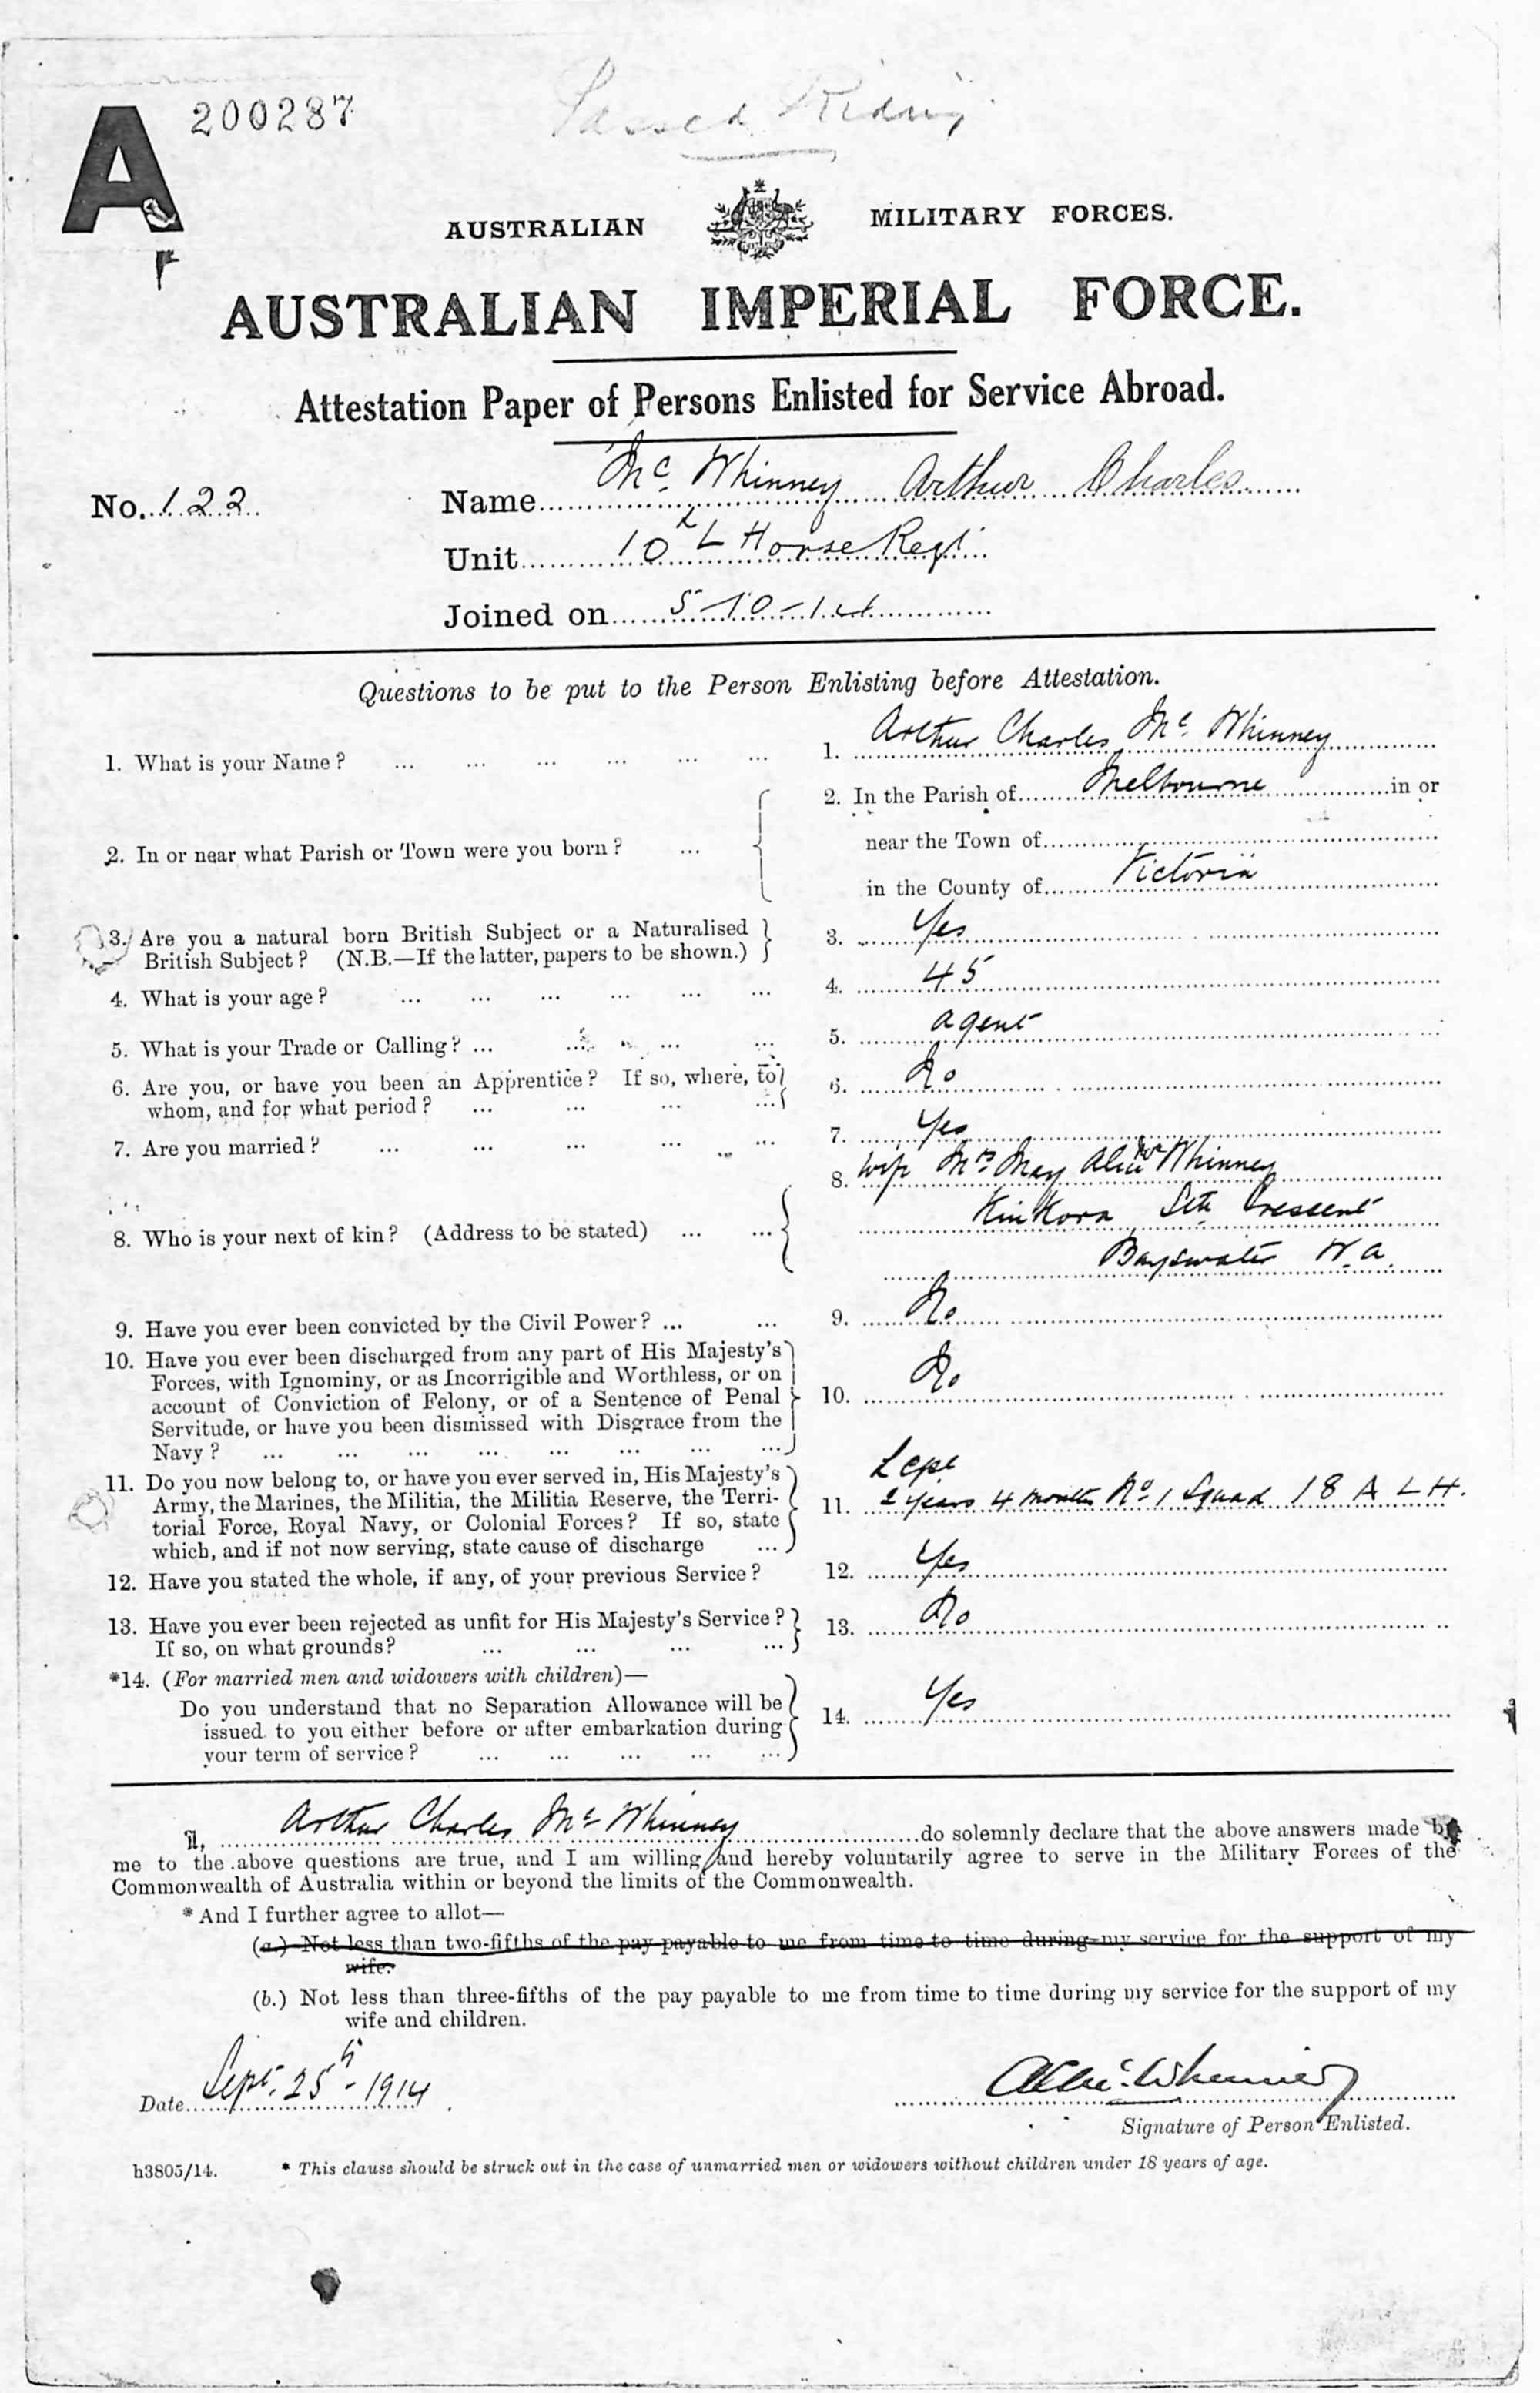 A 200287
Passed Riding
AUSTRALIAN MILITARY FORCES.
AUSTRALIAN IMPERIAL FORCE.
Attestation Paper of Persons Enlisted for Service Abroad.
No. 122 Name Mc Whinney Arthur Charles
Unit 10 L Horse Regt
Joined on 5-10-14
Questions to be put to the Person Enlisting before Attestation.
1. What is your Name? ... ... ... ... ... ... 1. Arthur Charles Mc Whinney
2. In or near what Parish or Town were you born? ... 2. In the Parish of Melbourne in or
near the Town of
in the County of Victoria
3. Are you a natural born British Subject or a Naturalised
British Subject? (N.B.—If the latter, papers to be shown.) 3. Yes
4. What is your age? ... ... ... ... ... ... 4. 45
5. What is your Trade or Calling? ... ... ... ... 5. agent
6. Are you, or have you been an Apprentice? If so, where, to
whom, and for what period? ... ... ... ... 6. No
7. Are you married? ... ... ... ... ... 7. Yes
8. Who is your next of kin? (Address to be stated) ... ... 8. Wife Mrs May Alice Mc Whinney
Kinkora Sth Cressent
Bayswater W.a.
9. Have you ever been convicted by the Civil Power? ... ... 9. No
10. Have you ever been discharged from any part of His Majesty's
Forces, with Ignominy, or as Incorrigible and Worthless, or on
account of Conviction of Felony, or of a Sentence of Penal
Servitude, or have you been dismissed with Disgrace from the
Navy? ... ... ... ... ... ... ... ... 10. No
11. Do you now belong to, or have you ever served in, His Majesty's
Army, the Marines, the Militia, the Militia Reserve, the Terri-
torial Force, Royal Navy, or Colonial Forces? If so, state
which, and if not now serving, state cause of discharge ... 11. L Cpl
2 years 4 months No 1 Squad 18 A L H.
12. Have you stated the whole, if any, of your previous Service? 12. Yes
13. Have you ever been rejected as unfit for His Majesty's Service?
If so, on what grounds? ... ... ... ... 13. No
*14. (For married men and widowers with children)—
Do you understand that no Separation Allowance will be
issued to you either before or after embarkation during
your term of service? ... ... ... ... ... 14. Yes
I, Arthur Charles Mc Whinney do solemnly declare that the above answers made by
me to the above questions are true, and I am willing and hereby voluntarily agree to serve in the Military Forces of the
Commonwealth of Australia within or beyond the limits of the Commonwealth.
* And I further agree to allot—
(a.) Not less than two-fifths of the pay payable to me from time to time during my service for the support of my
wife.
(b.) Not less than three-fifths of the pay payable to me from time to time during my service for the support of my
wife and children.
Date Sept. 25th - 1914
Signature of Person Enlisted.
h3805/14. * This clause should be struck out in the case of unmarried men or widowers without children under 18 years of age.